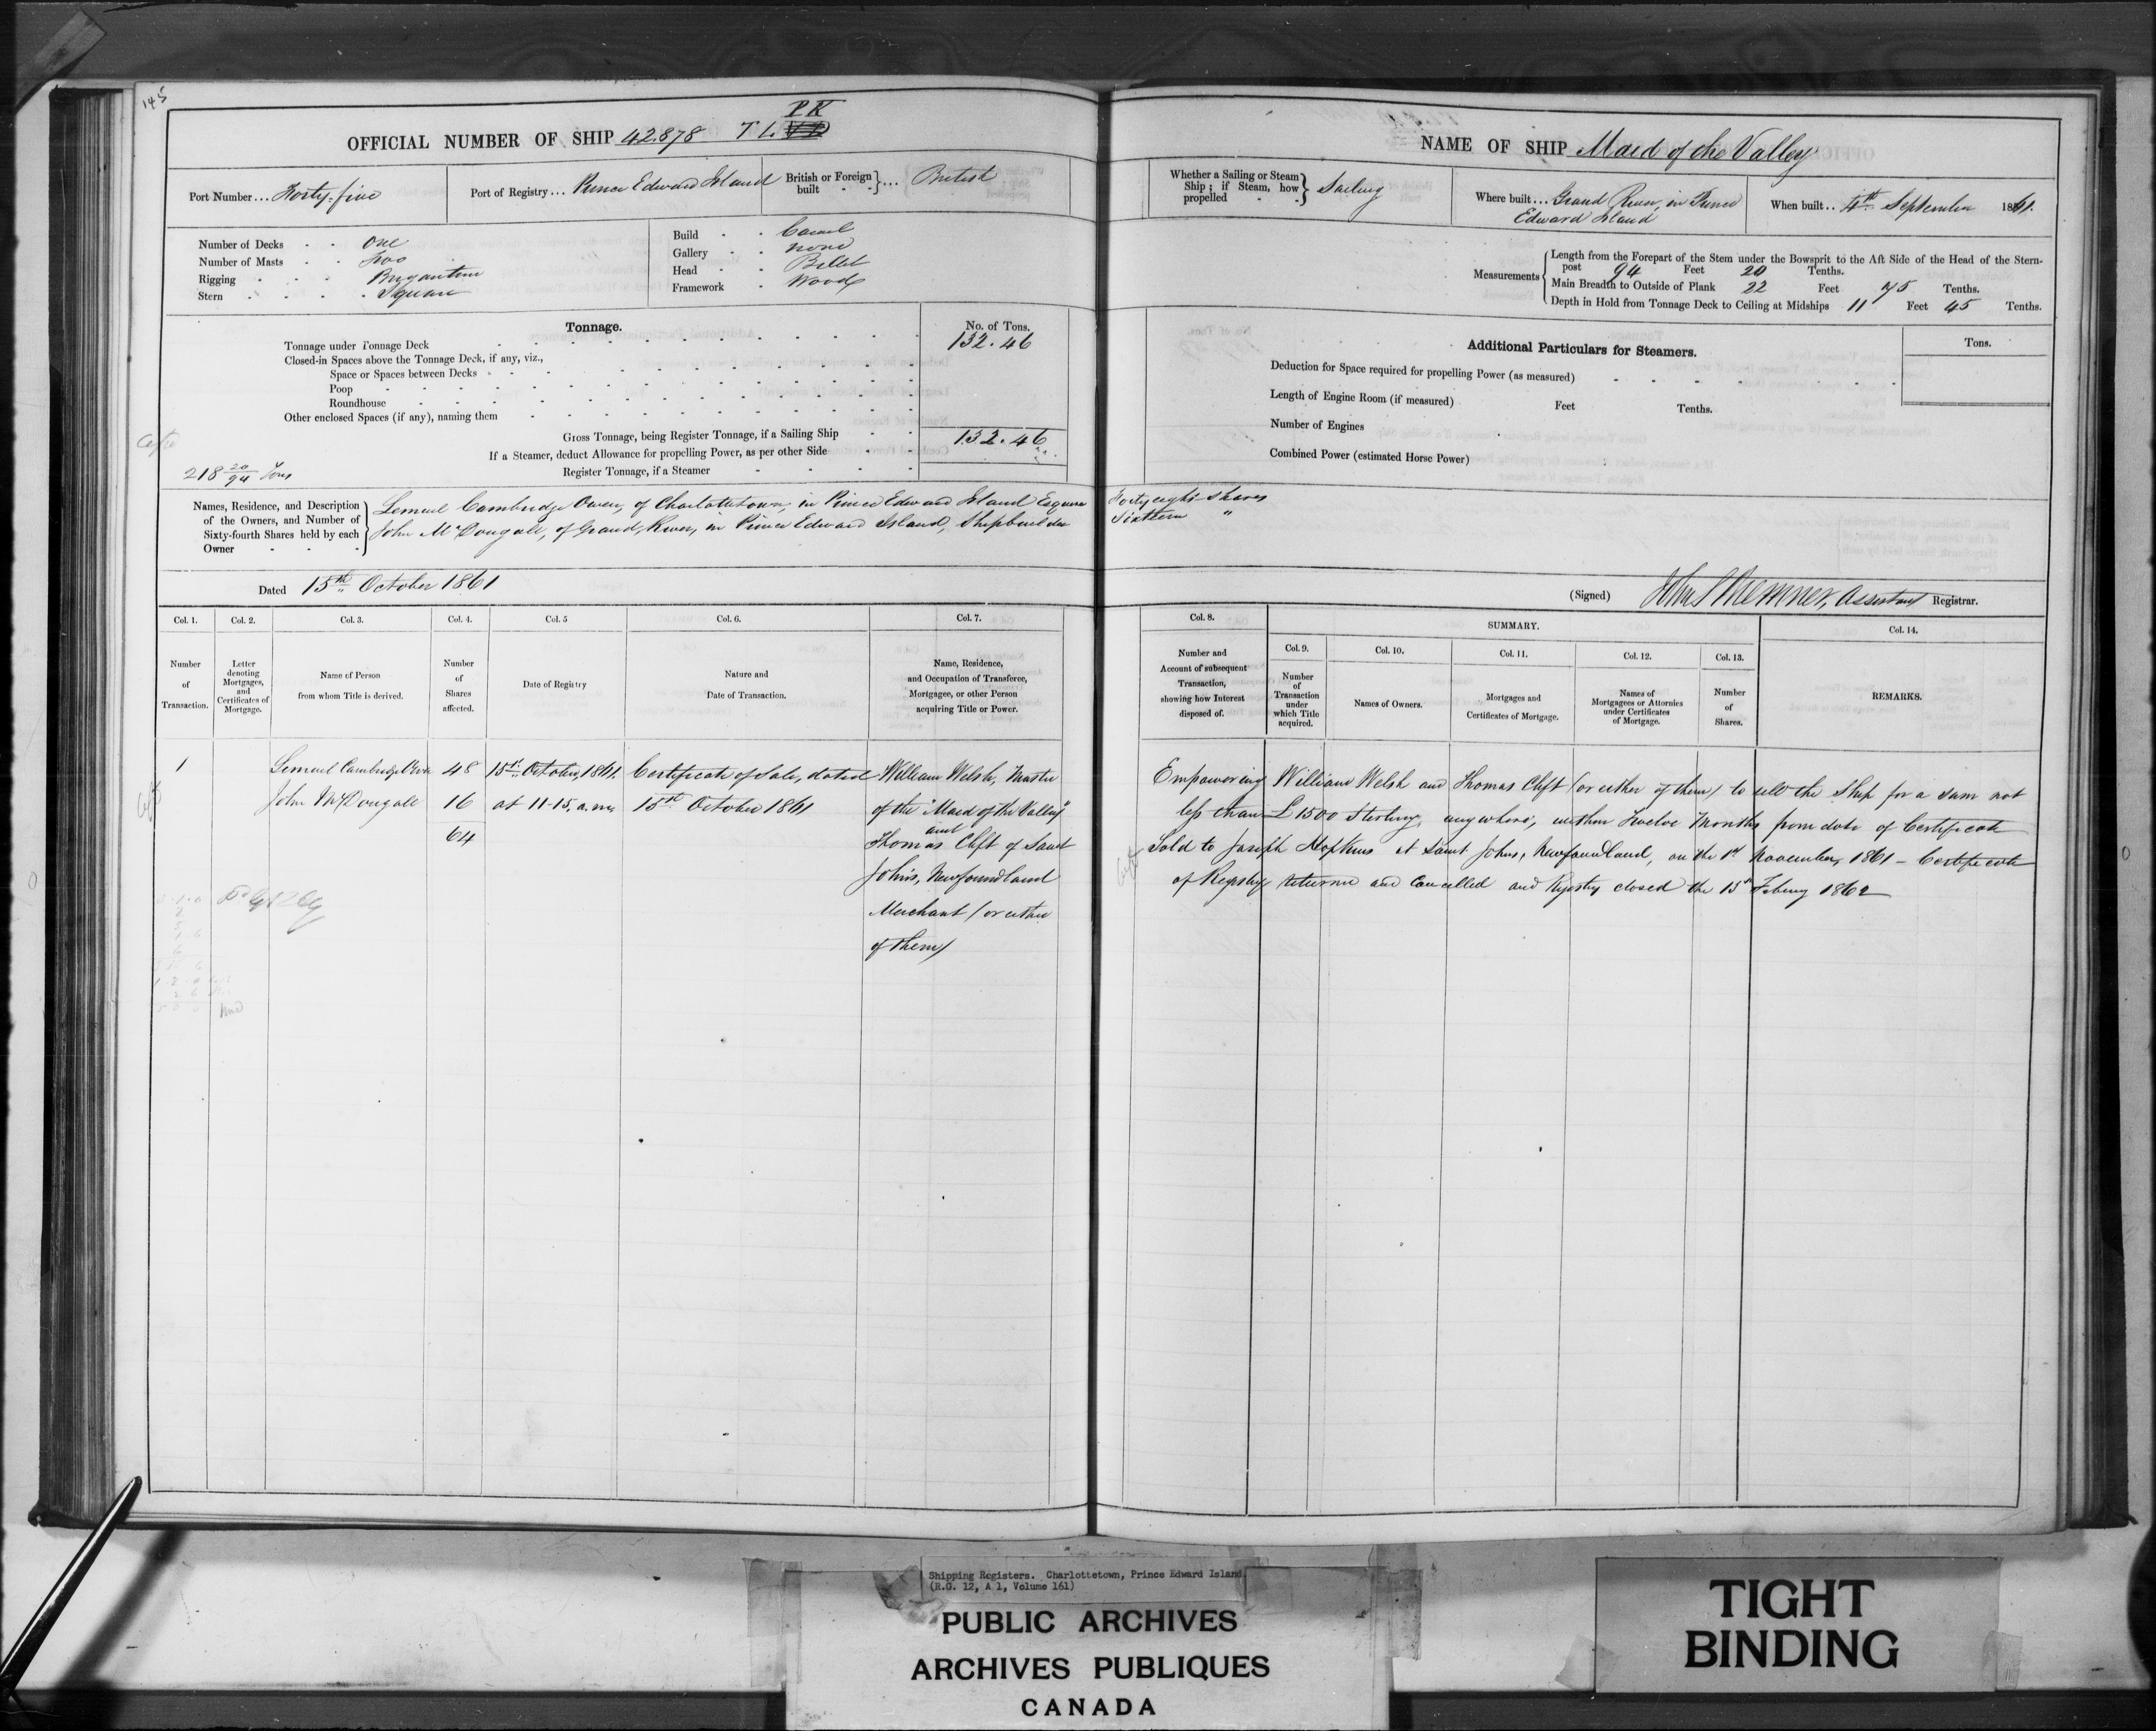 145
PK
OFFICIAL NUMBER OF SHIP 42.878 T L.
Port Number... Forty-five
Port of Registry... Prince Edward Island
British or Foreign built - - }... British
Number of Decks - - one
Number of Masts - - two
Rigging - - - Brigantine
Stern - - - - Square
Build - - Carvel
Gallery - - none
Head - - Billet
Framework - Wood
Tonnage.
No. of Tons.
Tonnage under Tonnage Deck 132.46
Closed-in Spaces above the Tonnage Deck, if any, viz.,
Space or Spaces between Decks
Poop
Roundhouse
Other enclosed Spaces (if any), naming them
Gross Tonnage, being Register Tonnage, if a Sailing Ship 132.46
If a Steamer, deduct Allowance for propelling Power, as per other Side
Register Tonnage, if a Steamer
218 20/94 Tons
Names, Residence, and Description
of the Owners, and Number of
Sixty-fourth Shares held by each
Owner
Lemuel Cambridge Owen, of Charlottetown, in Prince Edward Island Esquire
John McDougall, of Grand River, in Prince Edward Island, Shipbuilder
Dated 15th October 1861
Col. 1.
Number
of
Transaction.
Col. 2.
Letter
denoting
Mortgages,
and
Certificates of
Mortgage.
Col. 3.
Name of Person
from whom Title is derived.
Col. 4.
Number
of
Shares
affected.
Col. 5
Date of Registry
Col. 6.
Nature and
Date of Transaction.
Col. 7.
Name, Residence,
and Occupation of Transferee,
Mortgagee, or other Person
acquiring Title or Power.
1
Lemuel Cambridge Owen
John McDougall
48
16
64
15th October 1861.
at 11-15, a.m.
Certificate of Sale, dated
15th October 1861
William Welsh, Master
of the "Maid of the Valley"
and
Thomas Clift of Saint
John's, Newfoundland
Merchant (or either
of them)
NAME OF SHIP Maid of the Valley
Whether a Sailing or Steam
Ship; if Steam, how
propelled - - } Sailing
Where built... Grand River, in Prince
Edward Island
When built.. 4th September 1861.
Measurements
Length from the Forepart of the Stem under the Bowsprit to the Aft Side of the Head of the Stern-
post 94 Feet 20 Tenths.
Main Breadth to Outside of Plank 22 Feet 75 Tenths.
Depth in Hold from Tonnage Deck to Ceiling at Midships 11 Feet 45 Tenths.
Additional Particulars for Steamers.
Tons.
Deduction for Space required for propelling Power (as measured)
Length of Engine Room (if measured) Feet Tenths.
Number of Engines
Combined Power (estimated Horse Power)
Forty eight Shares
Sixteen "
(Signed) Assistant Registrar.
Col. 8.
Number and
Account of subsequent
Transaction,
showing how Interest
disposed of.
SUMMARY.
Col. 9.
Number
of
Transaction
under
which Title
acquired.
Col. 10.
Names of Owners.
Col. 11.
Mortgages and
Certificates of Mortgage.
Col. 12.
Names of
Mortgagees or Attornies
under Certificates
of Mortgage.
Col. 13.
Number
of
Shares.
Col. 14.
REMARKS.
Empowering William Welsh and Thomas Clift (or either of them) to sell the Ship for a sum not
less than £1500 Sterling, anywhere, within Twelve Months from date of Certificate
Sold to Joseph Hopkins at Saint Johns, Newfoundland, on the 1st November 1861 - Certificate
of Registry returned and Cancelled and Registry closed the 15th Febuy 1862
Shipping Registers. Charlottetown, Prince Edward Island
(R.G. 12, A 1, Volume 161)
PUBLIC ARCHIVES
ARCHIVES PUBLIQUES
CANADA
TIGHT
BINDING